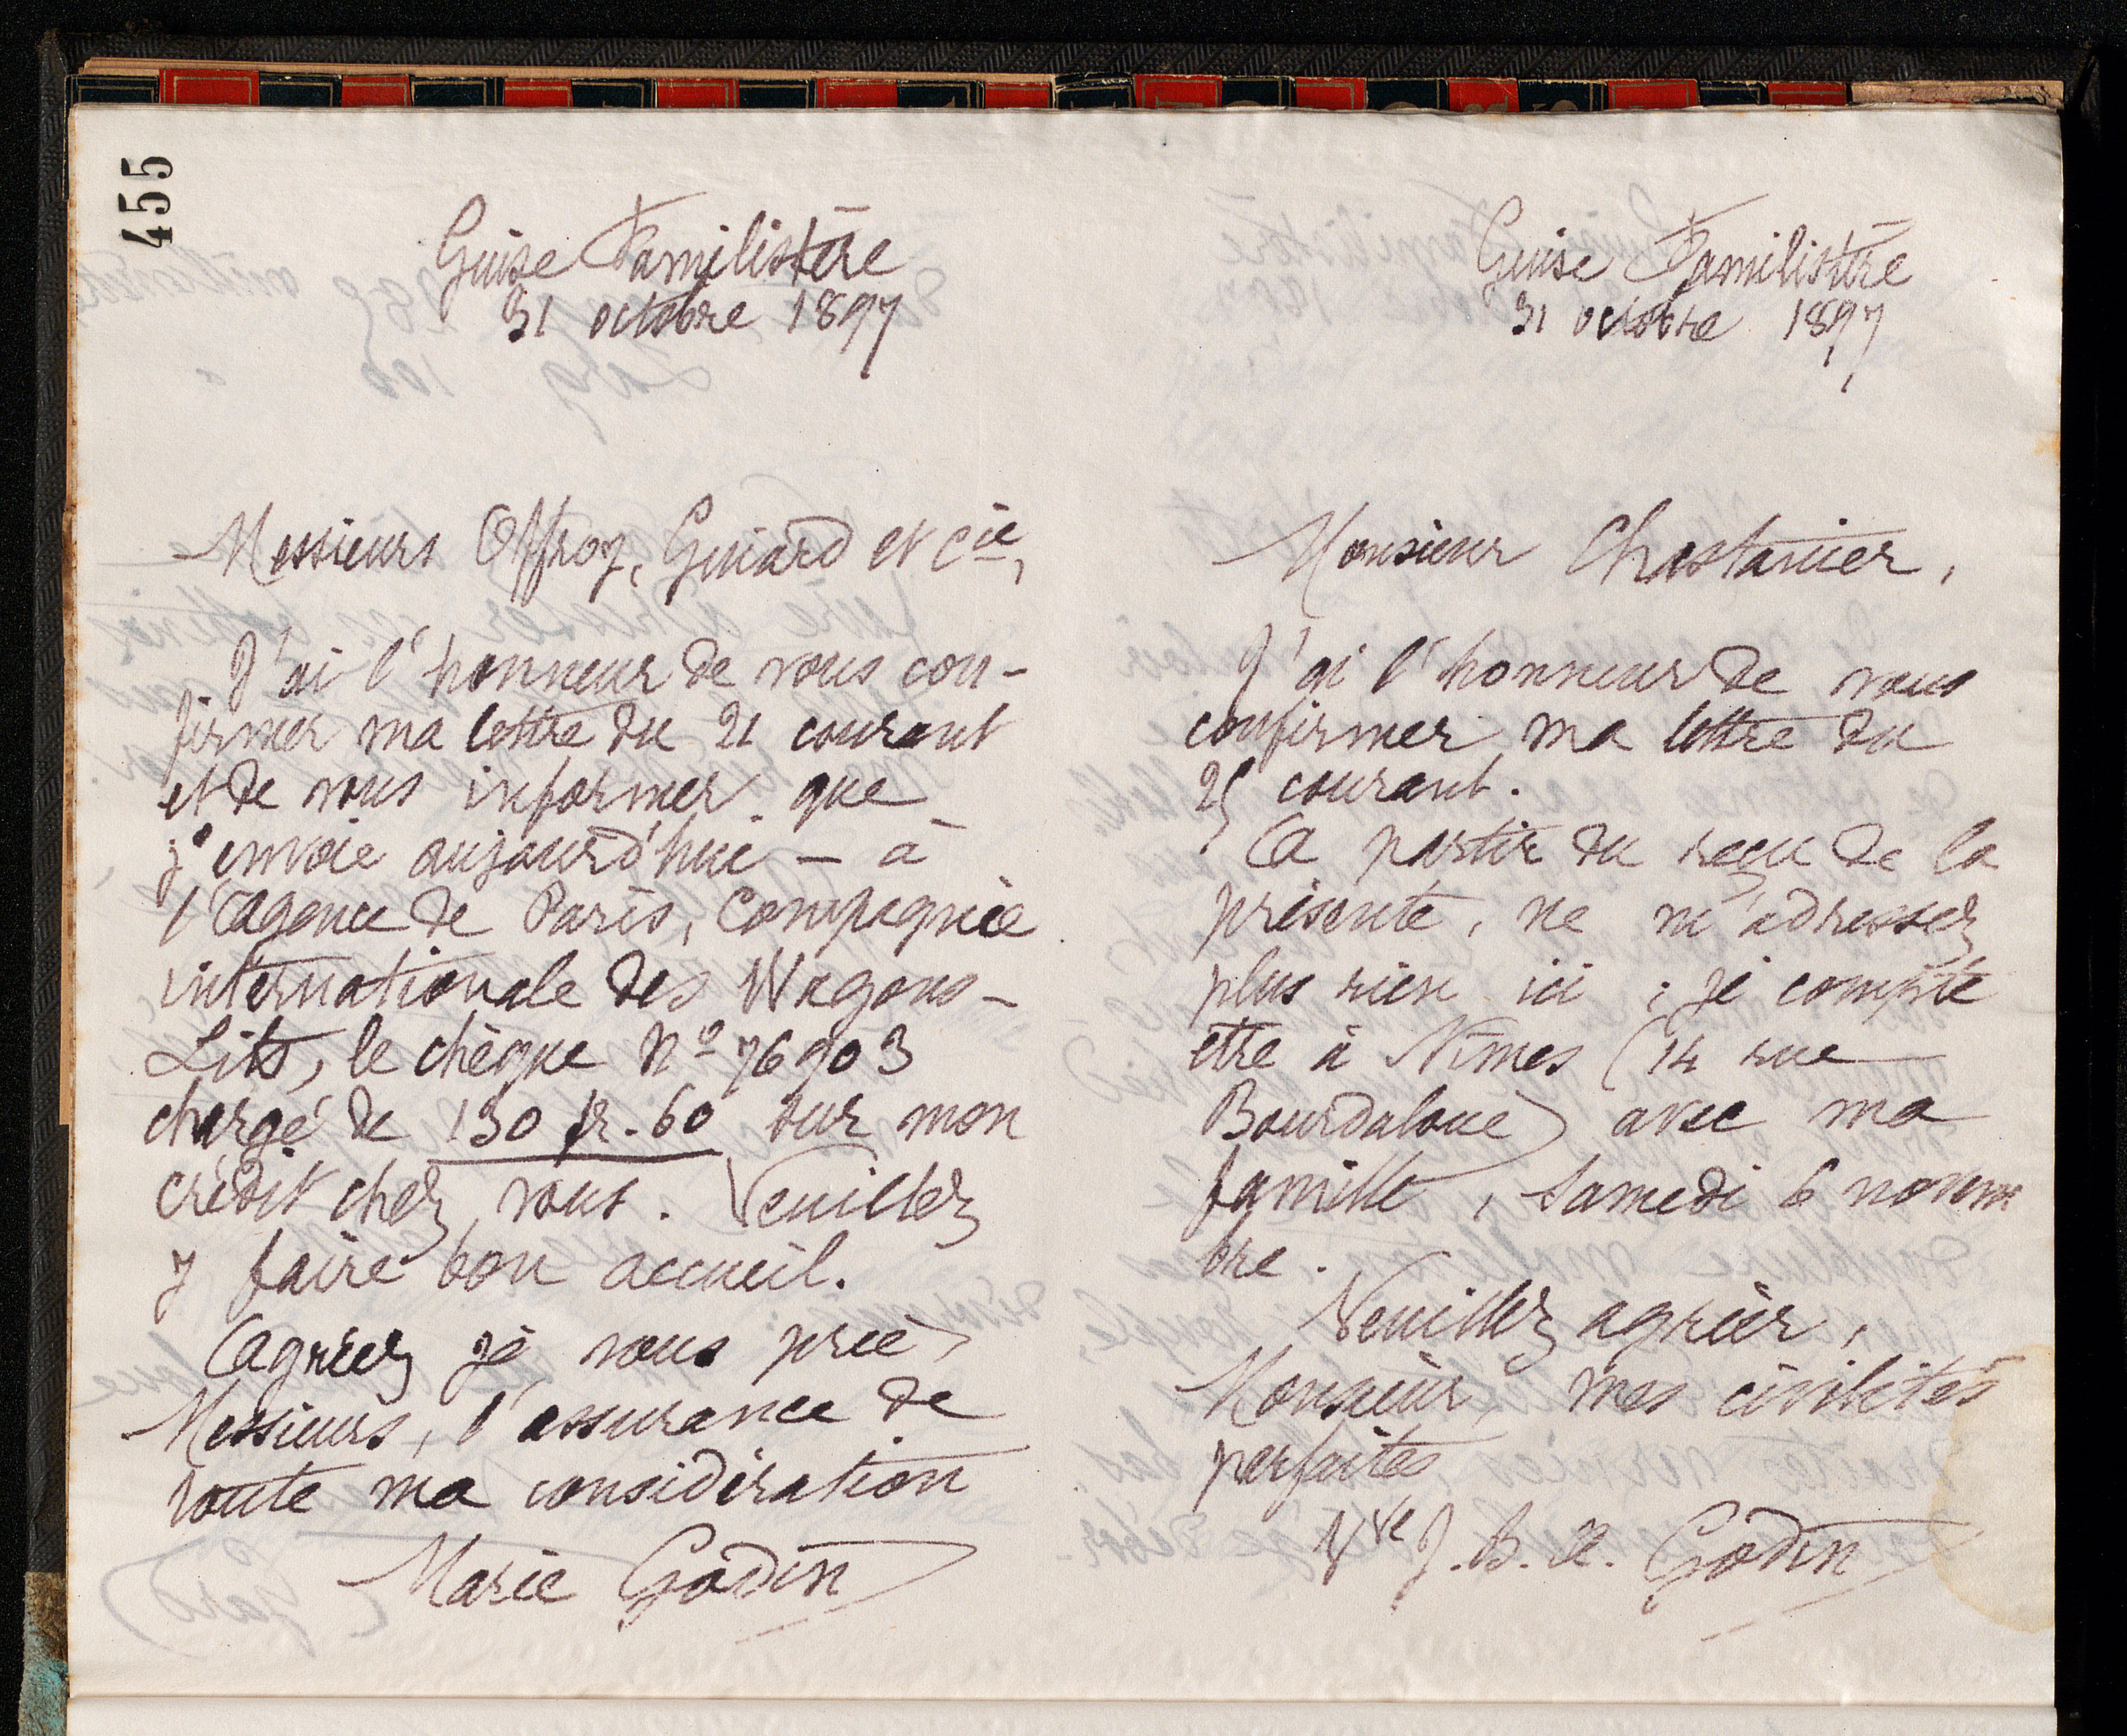 455
Guise Familistère
31 octobre 1897
Messieurs Offroy, Guiard et Cie,
J'ai l'honneur de vous con-
firmer ma lettre du 21 courant
et de vous informer que
j'envoie aujourd'hui – à
l'Agence de Paris, Compagnie
internationale des Wagons-
Lits, le chèque No 76903
chargé de 130 fr. 60 sur mon
crédit chez vous. Veuillez
y faire bon accueil.
Agréez je vous prie,
Messieurs, l'assurance de
toute ma considération
Marie Godin
Guise Familistère
31 octobre 1897
Monsieur Chastanier,
J'ai l'honneur de vous
confirmer ma lettre du
25 courant.
A partir du reçu de la
présente, ne m'adressez
plus rien ici ; je compte
être à Nîmes (14 rue
Bourdaloue) avec ma
famille, samedi 6 novem
bre.
Veuillez agréer,
Monsieur, mes civilités
parfaites
Vve J. B. A. Godin